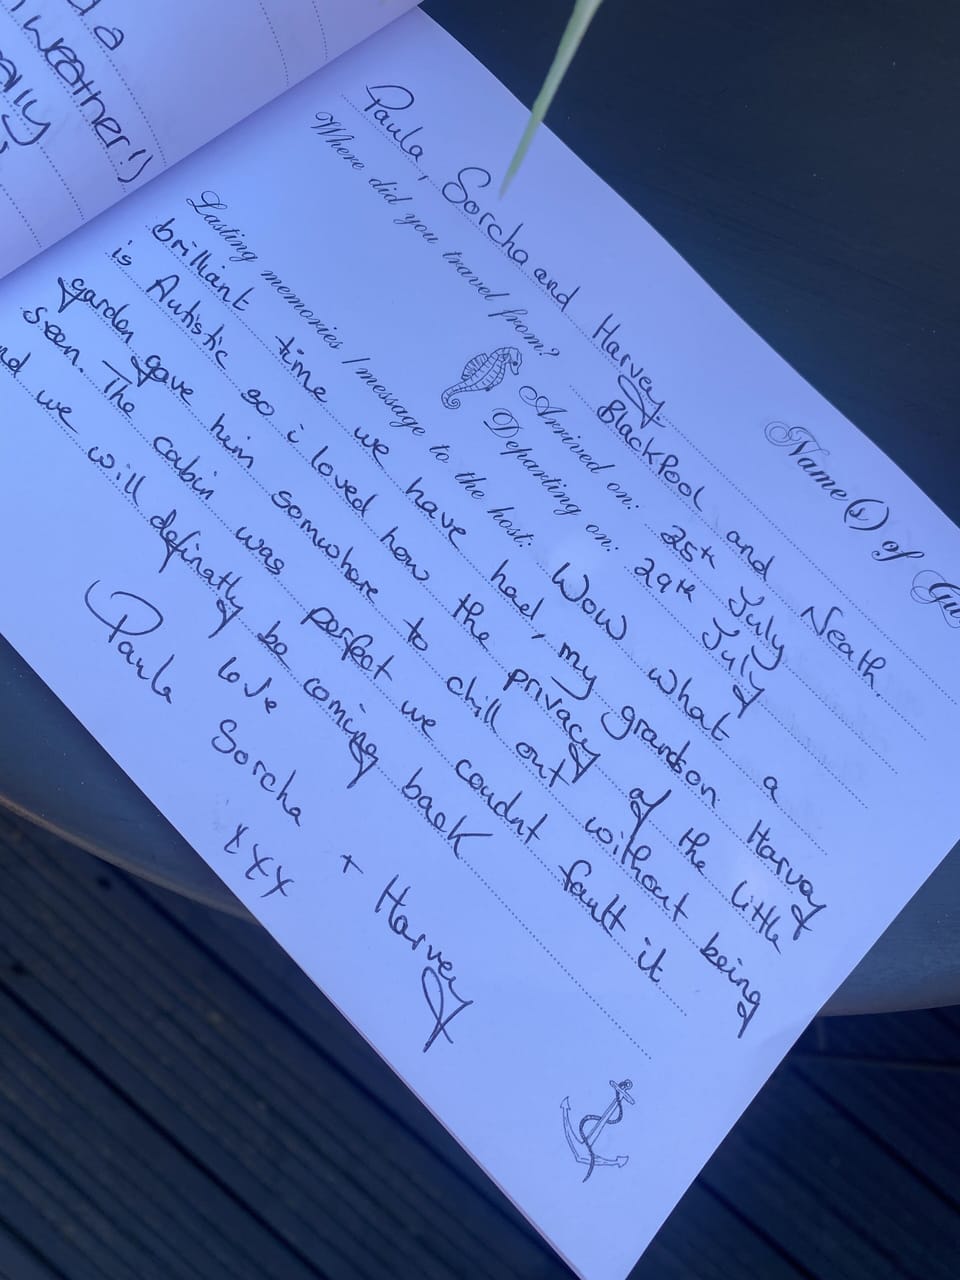 d a
weather!)
ally
Name(s) of Gu
Paula, Sorcha and Harvey
Where did you travel from? BlackPool and Neath.
Arrived on: 25th July
Departing on: 29th July
Lasting memories / message to the host: Wow what a
brilliant time we have had, my grandson Harvey
is Autistic so i loved how the privacy of the little
garden gave him somwhere to chill out without being
seen. The cabin was perfect we coudnt fault it
nd we will definatly be coming back
love
Paula Sorcha + Harvey
xxx